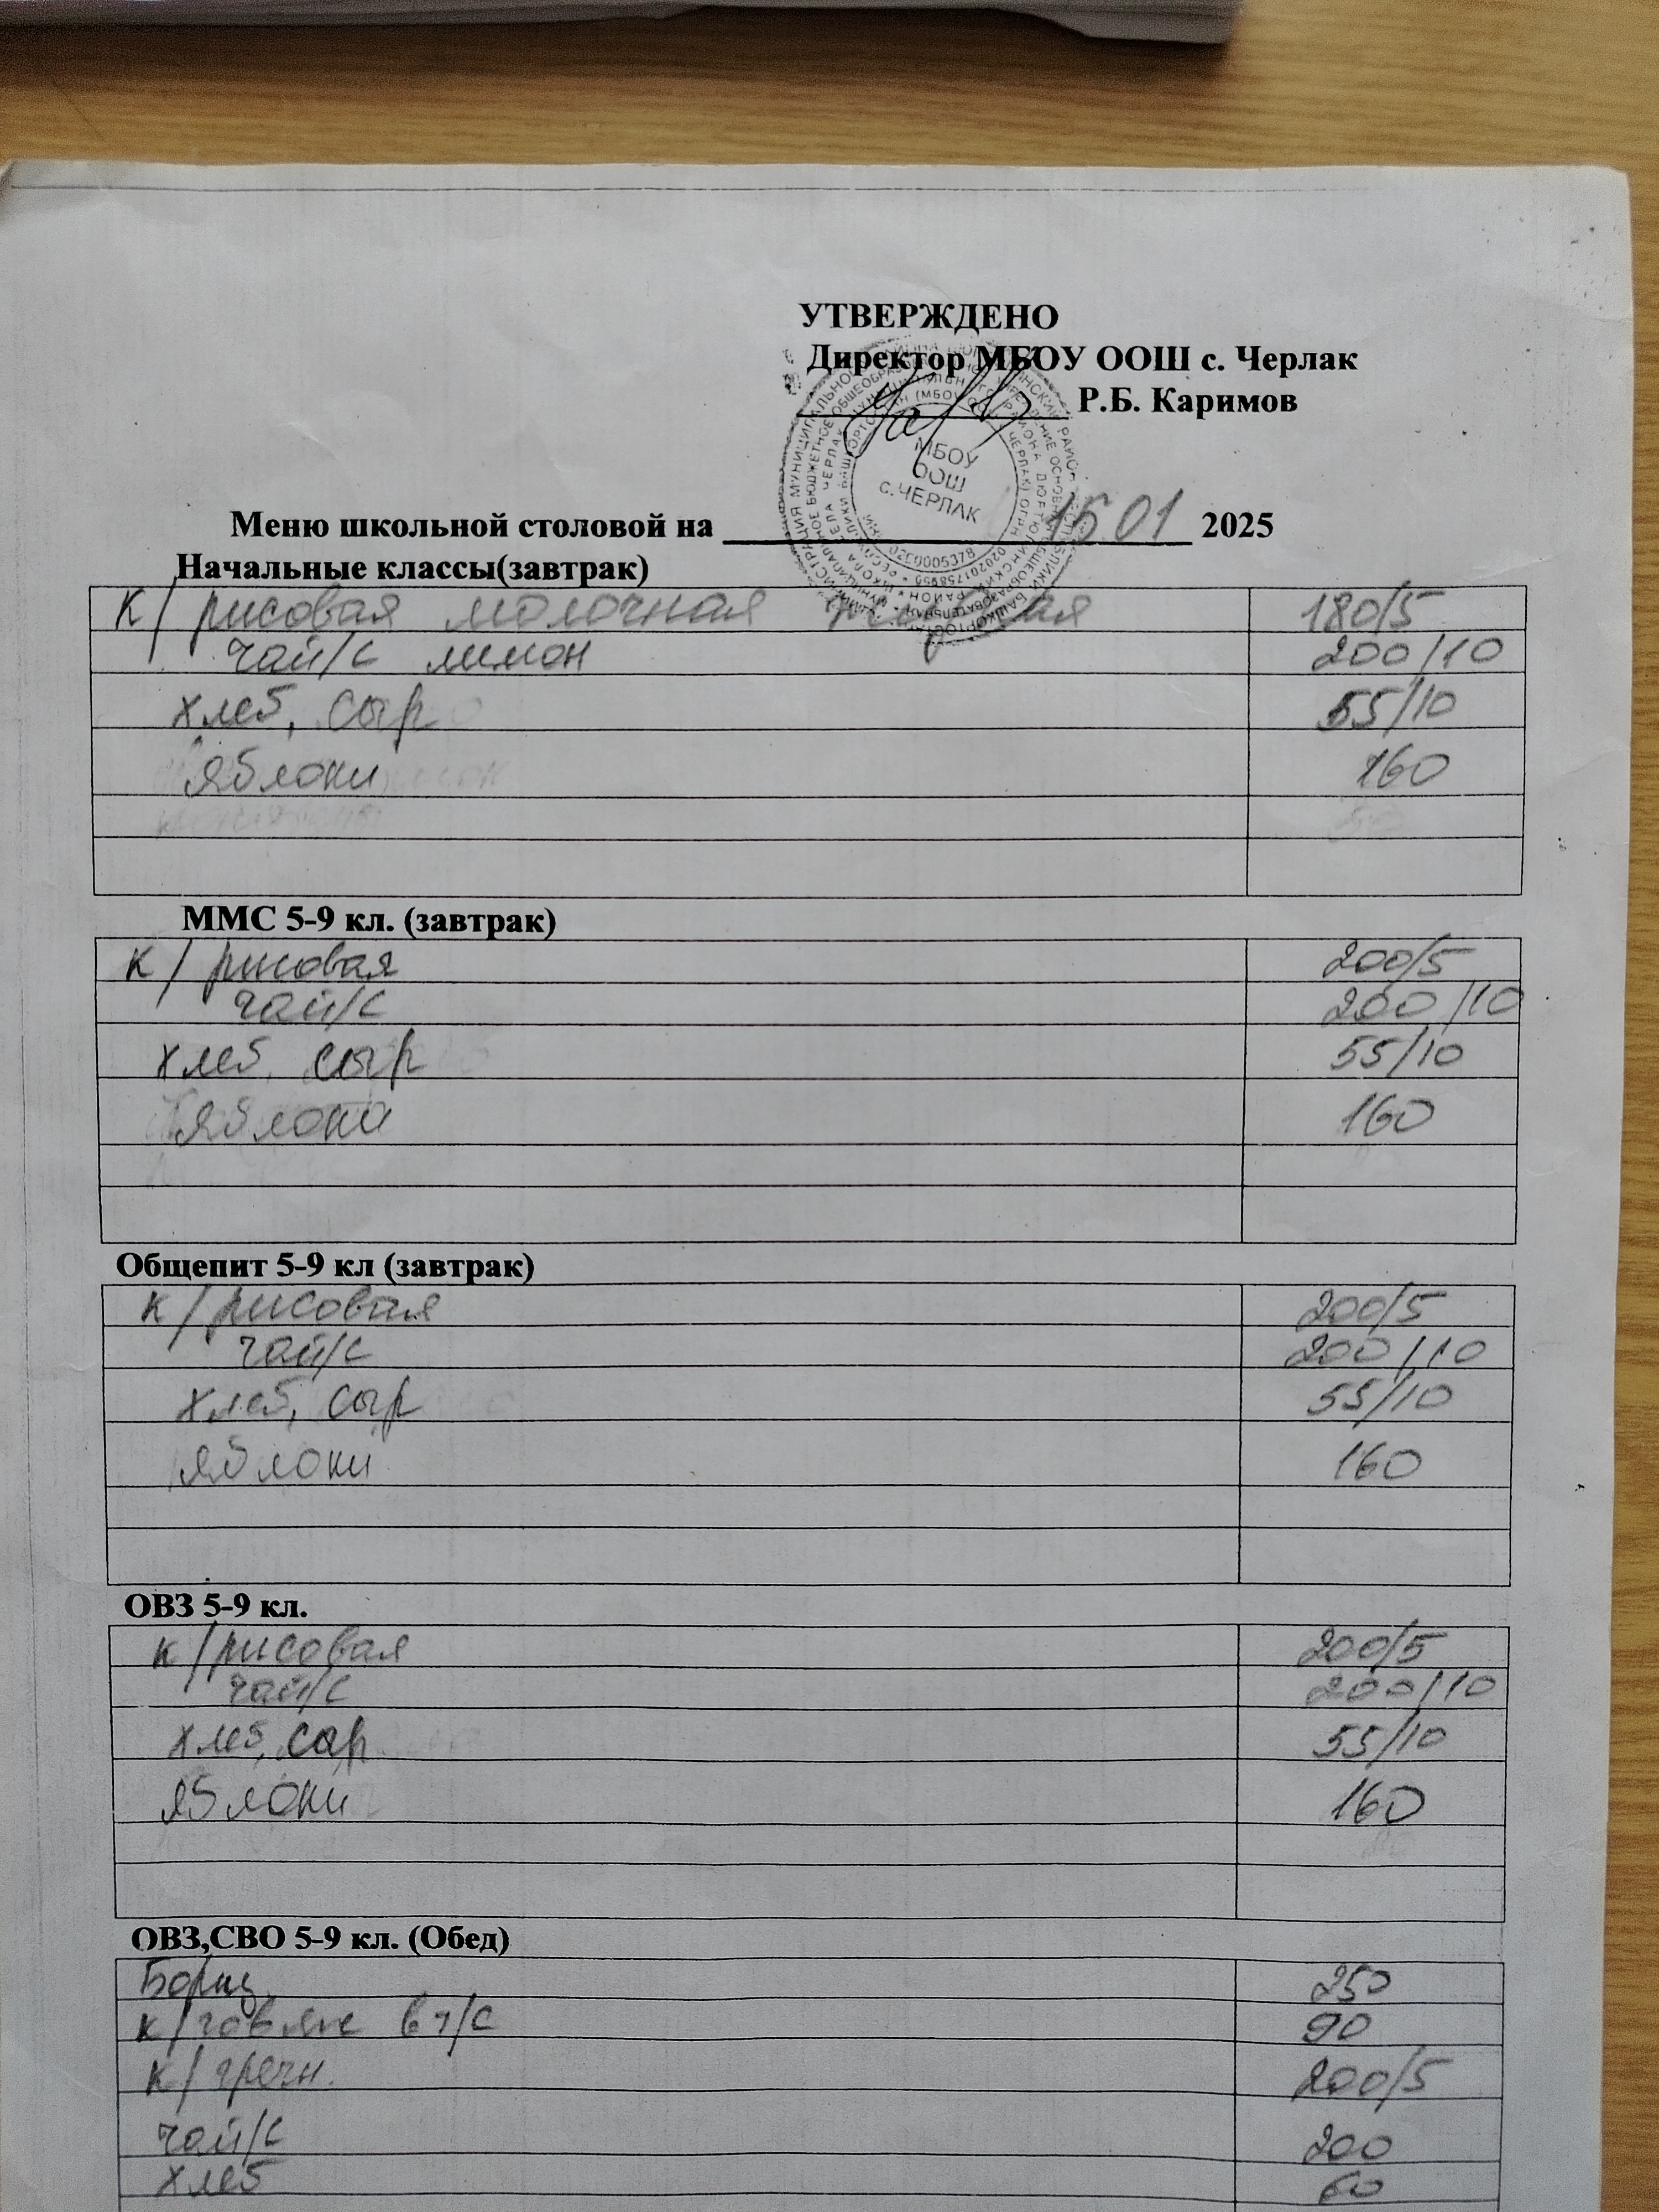 УТВЕРЖДЕНО
Директор МБОУ ООШ с. Черлак
Р.Б. Каримов
МБОУ
ООШ
с.ЧЕРЛАК
Меню школьной столовой на 15.01 2025
Начальные классы(завтрак)
К/рисовая молочная 180/5
чай/с лимон 200/10
хлеб, сыр 55/10
яблоки 160
ММС 5-9 кл. (завтрак)
К/рисовая 200/5
чай/с 200/10
хлеб, сыр 55/10
яблоки 160
Общепит 5-9 кл (завтрак)
к/рисовая 200/5
чай/с 200/10
хлеб, сыр 55/10
яблоки 160
ОВЗ 5-9 кл.
к/рисовая 200/5
чай/с 200/10
хлеб, сыр 55/10
яблоки 160
ОВЗ,СВО 5-9 кл. (Обед)
Борщ 250
к/говяж в т/с 90
к/гречн. 200/5
чай/с 200
хлеб 60